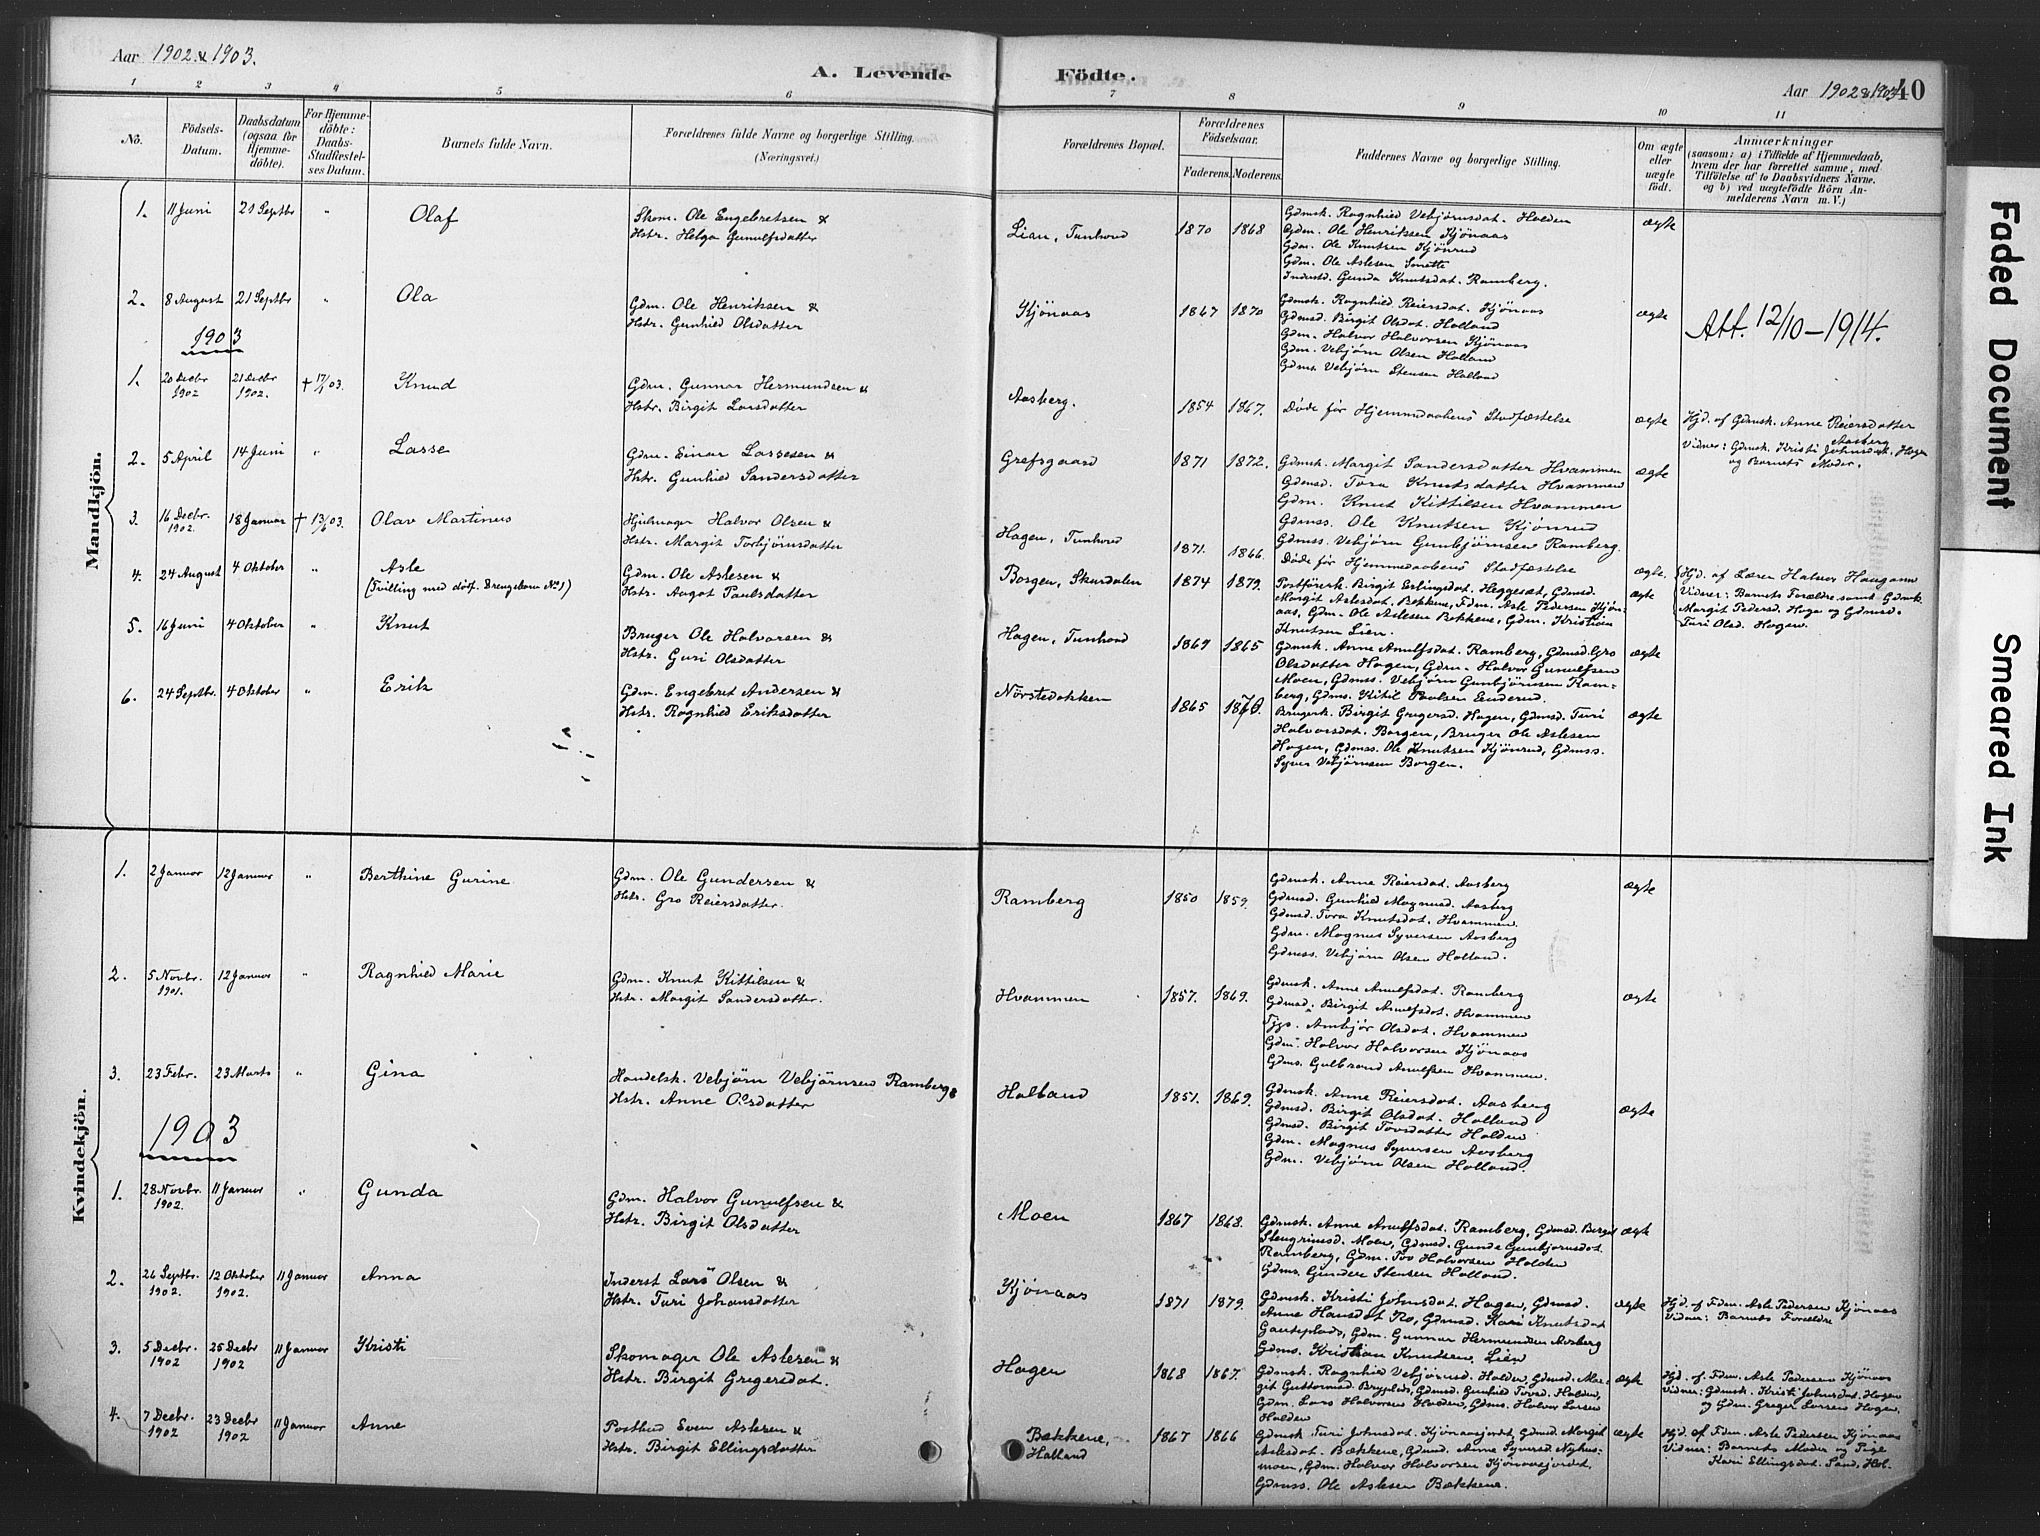 Aar 1902 & 1903.
A. Levende
Födte.
Aar 1902 & 1903
40
1 2 3 4 5 6 7 8 9 10 11
No.
Födsels-
Datum.
Daabsdatum
(ogsaa for
Hjemme-
döbte).
For Hjemme-
döbte:
Daabs-
Stadfæstel-
ses Datum.
Barnets fulde Navn.
Forældrenes fulde Navne og borgerlige Stilling.
(Næringsvei.)
Forældrenes Bopæl.
Forældrenes
Födselsaar.
Faderens. Moderens.
Faddernes Navne og borgerlige Stilling.
Om ægte
eller
uægte
födt.
Anmærkninger
(saasom: a) i Tilfælde af Hjemmedaab,
hvem der har forrettet samme, med
Tilföielse af to Daabsvidners Navne.
og b) ved uægtefödte Börn An-
melderens Navn m. V.)
Mandkjön.
1. 11 Juni 21 Septbr " Olaf
Skom. Ole Engebretsen &
Hstr. Helga Gunulfsdatter
Lian, Tunhovd 1870 1868
Gdmsk. Ragnhild Vebjørnsdat. Holden
Gdm. Ole Henriksen Kjønaas
Gdm. Ole Knutsen Kjønrud
Gdm. Ole Aslesen Smette
Inderstd. Gunda Knutsdat. Ramberg.
ægte
2. 8 August 21 Septbr " Ola
Gdm. Ole Henriksen &
Hstr. Gunhild Olsdatter
Kjønaas 1867 1870
Gdmsk. Ragnhild Reiersdat. Kjønaas
Gdmsd. Birgit Olsdat. Holland
Gdm. Halvor Halvorsen Kjønaas
Gdm. Vebjørn Olsen Holland
Gdms. Vebjørn Stensen Holland
ægte
Att. 12/10 – 1914.
1903
1. 20 Decbr 1902 21 Decbr 1902. † 17/1 03. Knud
Gdm. Gunnar Hermundsen &
Hstr. Birgit Larsdatter
Aasberg. 1854 1867.
Døde før Hjemmedaabens Stadfæstelse
ægte
Hjd. af Gdmsk. Anne Reiersdatter
Aasberg
Vidner: Gdmsk. Kristi Johnsdat. Hagen
og Barnets Moder.
2. 5 April 14 Juni " Lasse
Gdm. Einar Lassesen &
Hstr. Gunhild Sandersdatter
Grefsgaard 1871 1872.
Gdmsk. Margit Sandersdatter Hvammen
Gdmsd. Tora Knutsdatter Hvammen
Gdm. Knut Kittilsen Hvammen
Gdmss. Ole Knutsen Kjønrud
Gdmss. Vebjørn Gunbjørnsen Ramberg.
ægte
3. 16 Decbr. 1902. 18 Januar † 13/6 03. Olav Martinus
Hjulmager Halvor Olsen &
Hstr. Margit Torbjørnsdatter
Hagen, Tunhovd 1871. 1866.
Døde før Hjemmedaabens Stadfæstelse
ægte.
Hjd. af Lærer Halvor Haugann
Vidner: Barnets Forældre samt Gdmsk.
Margit Pedersd. Haga og Gdmsd.
Turi Olsd. Hagen.
4. 24 August 4 Oktober " Asle
(Tvilling med dødf. Drengebarn No 1)
Gdm. Ole Aslesen &
Hstr. Aagot Paulsdatter
Borgen, Skurdalen 1874 1879.
Postførerk. Birgit Erlingsdat. Heggesæt, Gdmsd.
Margit Aslesdat. Bekkene, Fdm. Asle Pedersen Kjøn-
aas, Gdm. Ole Aslesen Bekkene, Gdm. Kristian
Knutsen Lien.
ægte
5. 16 Juni 4 Oktober " Knut
Bruger Ole Halvorsen &
Hstr. Guri Olsdatter
Hagen, Tunhovd 1869 1865
Gdmsk. Anne Anulfsdat. Ramberg, Gdmsd. Gro
Olsdatter Hagen, Gdm. Halvor Gunulfsen
Moen, Gdmss. Vebjørn Gunbjørnsen Ram-
berg, Gdms. Kitil Paulsen Enderud.
ægte
6. 24 Septbr. 4 Oktober " Erik
Gdm. Engebret Andersen &
Hstr. Ragnhild Eriksdatter
Nørstedokken 1865 1870.
Brugerk. Birgit Gregersd. Hagen, Gdmsd. Turi
Halvorsdat. Borgen, Bruger Ole Aslesen
Hagen, Gdmss. Ole Knutsen Kjønrud, Gdmss.
Syver Vebjørnsen Borgen.
ægte
Kvindekjön.
1. 2 Januar 12 Januar " Berthine Gurine
Gdm. Ole Gundersen &
Hstr. Gro Reiersdatter.
Ramberg 1850 1859.
Gdmsk. Anne Reiersdat. Aasberg
Gdmsd. Gunhild Magnusd. Aasberg
Gdmsd. Tora Knutsdat. Hvammen.
Gdm. Magnus Syversen Aasberg
Gdmss. Vebjørn Olsen Holland.
ægte
2. 5 Novbr. 1901. 12 Januar " Ragnhild Marie
Gdm. Knut Kittilsen &
Hstr. Margit Sandersdatter.
Hvammen 1857. 1869.
Gdmsk. Anne Anulfsdat. Ramberg
Gdmsd. Birgit Anulfsdat. Hvammen
Tjgp. Ambjør Olsdat. Hvammen
Gdm. Halvor Halvorsen Kjønaas
Gdms. Gulbrand Anulfsen Hvammen.
ægte
3. 23 Febr. 23 Marts " Gina
Handelsk. Vebjørn Vebjørnsen Ramberg &
Hstr. Anne Olsdatter
Holland 1851. 1869.
Gdmsk. Anne Reiersdat. Aasberg
Gdmsd. Birgit Olsdat. Holland
Gdmsd. Birgit Tovsdatter Holden
Gdm. Magnus Syversen Aasberg
Gdm. Vebjørn Olsen Holland.
ægte
1903
1. 28 Novbr. 1902. 11 Januar " Gunda
Gdm. Halvor Gunulfsen &
Hstr. Birgit Olsdatter
Moen 1867 1868.
Gdmsk. Anne Anulfsdat. Ramberg, Gdmsd. Birgit
Stengrimsd. Moen, Gdmsd. Gunda Gunbjørnsdat.
Ramberg, Gdm. Tov Halvorsen Holden
Gdms. Gunder Stensen Holland.
ægte
2. 26 Septbr. 1902. 12 Oktober 1902. 11 Januar Anna
Inderst Lars Olsen &
Hstr. Turi Johansdatter
Kjønaas 1871 1879.
Gdmsk. Kristi Johnsdat. Hagen, Gdmsd.
Anne Hansdat Ro, Gdmsd. Kari Knutsdat
Gauteplads, Gdm. Gunnar Hermundsen Aasberg
Gdms. Kristian Knudsen Lien
ægte
Hjd. af Fdm. Asle Pedersen Kjønaas
Vidner: Barnets Forældre
3. 5 Decbr. 1902 25 Decbr 1902 11 Januar Kristi
Skomager Ole Aslesen &
Hstr. Birgit Gregersdat.
Hagen 1868 1867.
Gdmsk. Ragnhild Vebjørnsd. Holden, Gdmsd. Mar-
git Guttormsd. Bryplads, Gdmsd. Gunhild Tovsd. Holden,
Gdm. Lars Halvorsen Holden, Gdms. Halvor Larsen
Holden
ægte
Hjd. af Fdm. Asle Pedersen Kjønaas
Vidner: Gdmsk. Kristi Johnsdat. Hagen
og Gdm. Greger Larsen Hagen.
4. 7 Decbr. 1902 23 Decbr 1902 11 Januar Anne
Postbud Even Aslesen &
Hstr. Birgit Ellingsdatter
Bækkene,
Holland 1867 1866
Gdmsk Turi Johnsdat. Kjønaasjordet, Gdmsd. Margit
Aslesdat. Bækkene, Gdmsd. Anne Syversd. Nyhus-
moen, Gdm. Halvor Halvorsen Kjønaasjordet,
Gdmss. Ole Aslesen Bækkene.
ægte
Hjd. af Fdm. Asle Pedersen Kjønaas
Vidner: Barnets Moder og Pige
Kari Ellingsdat. Sand, Hol.
Faded Document
Smeared Ink